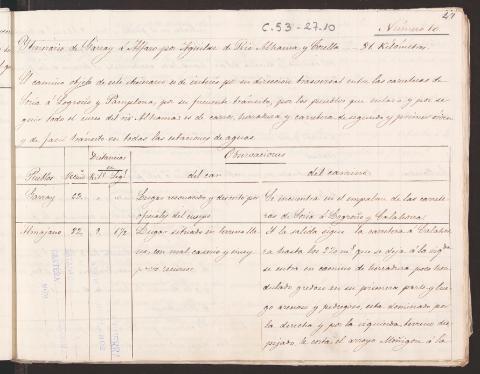 27
C.53-27.10
Número 10.
Ytinerario de Garray á Alfaro por Aguilar de Rio Alhama y Corella 91 Kilómetros.
El camino objeto de este itinerario es de interés por su dirección trasversal entre las carreteras de
Soria á Logroño y Pamplona, por su frecuente tránsito, por los pueblos que enlaza y por se-
guir todo el curso del rio Alhama: es de carro, herradura y carretera de segundo y primer orden
y de facil tránsito en todas las estaciones de aguas.
Pueblos Vecin. Distancias en Kil. Leg. Observaciones
del car del camino
Garray 23. " " Lugar reconocido y descrito por
oficiales del cuerpo
Se encuentra en el empalme de las carrete-
ras de Soria á Logroño y Calahorra
Almajano 82. 9. 1 1/2 Lugar situado en terreno lla-
no, con mal caserio y muy
pocos recursos
A la salida sigue la carretera á Calahor-
ra hasta los que se deja á la izqda
se entra en camino de herradura poco hon-
dulado, gredoso en su primera parte, y lue-
go arenoso y pedregoso, esta dominado por
la derecha y por la izquierda terreno des-
pejado, le corta el arroyo Moñigon á la